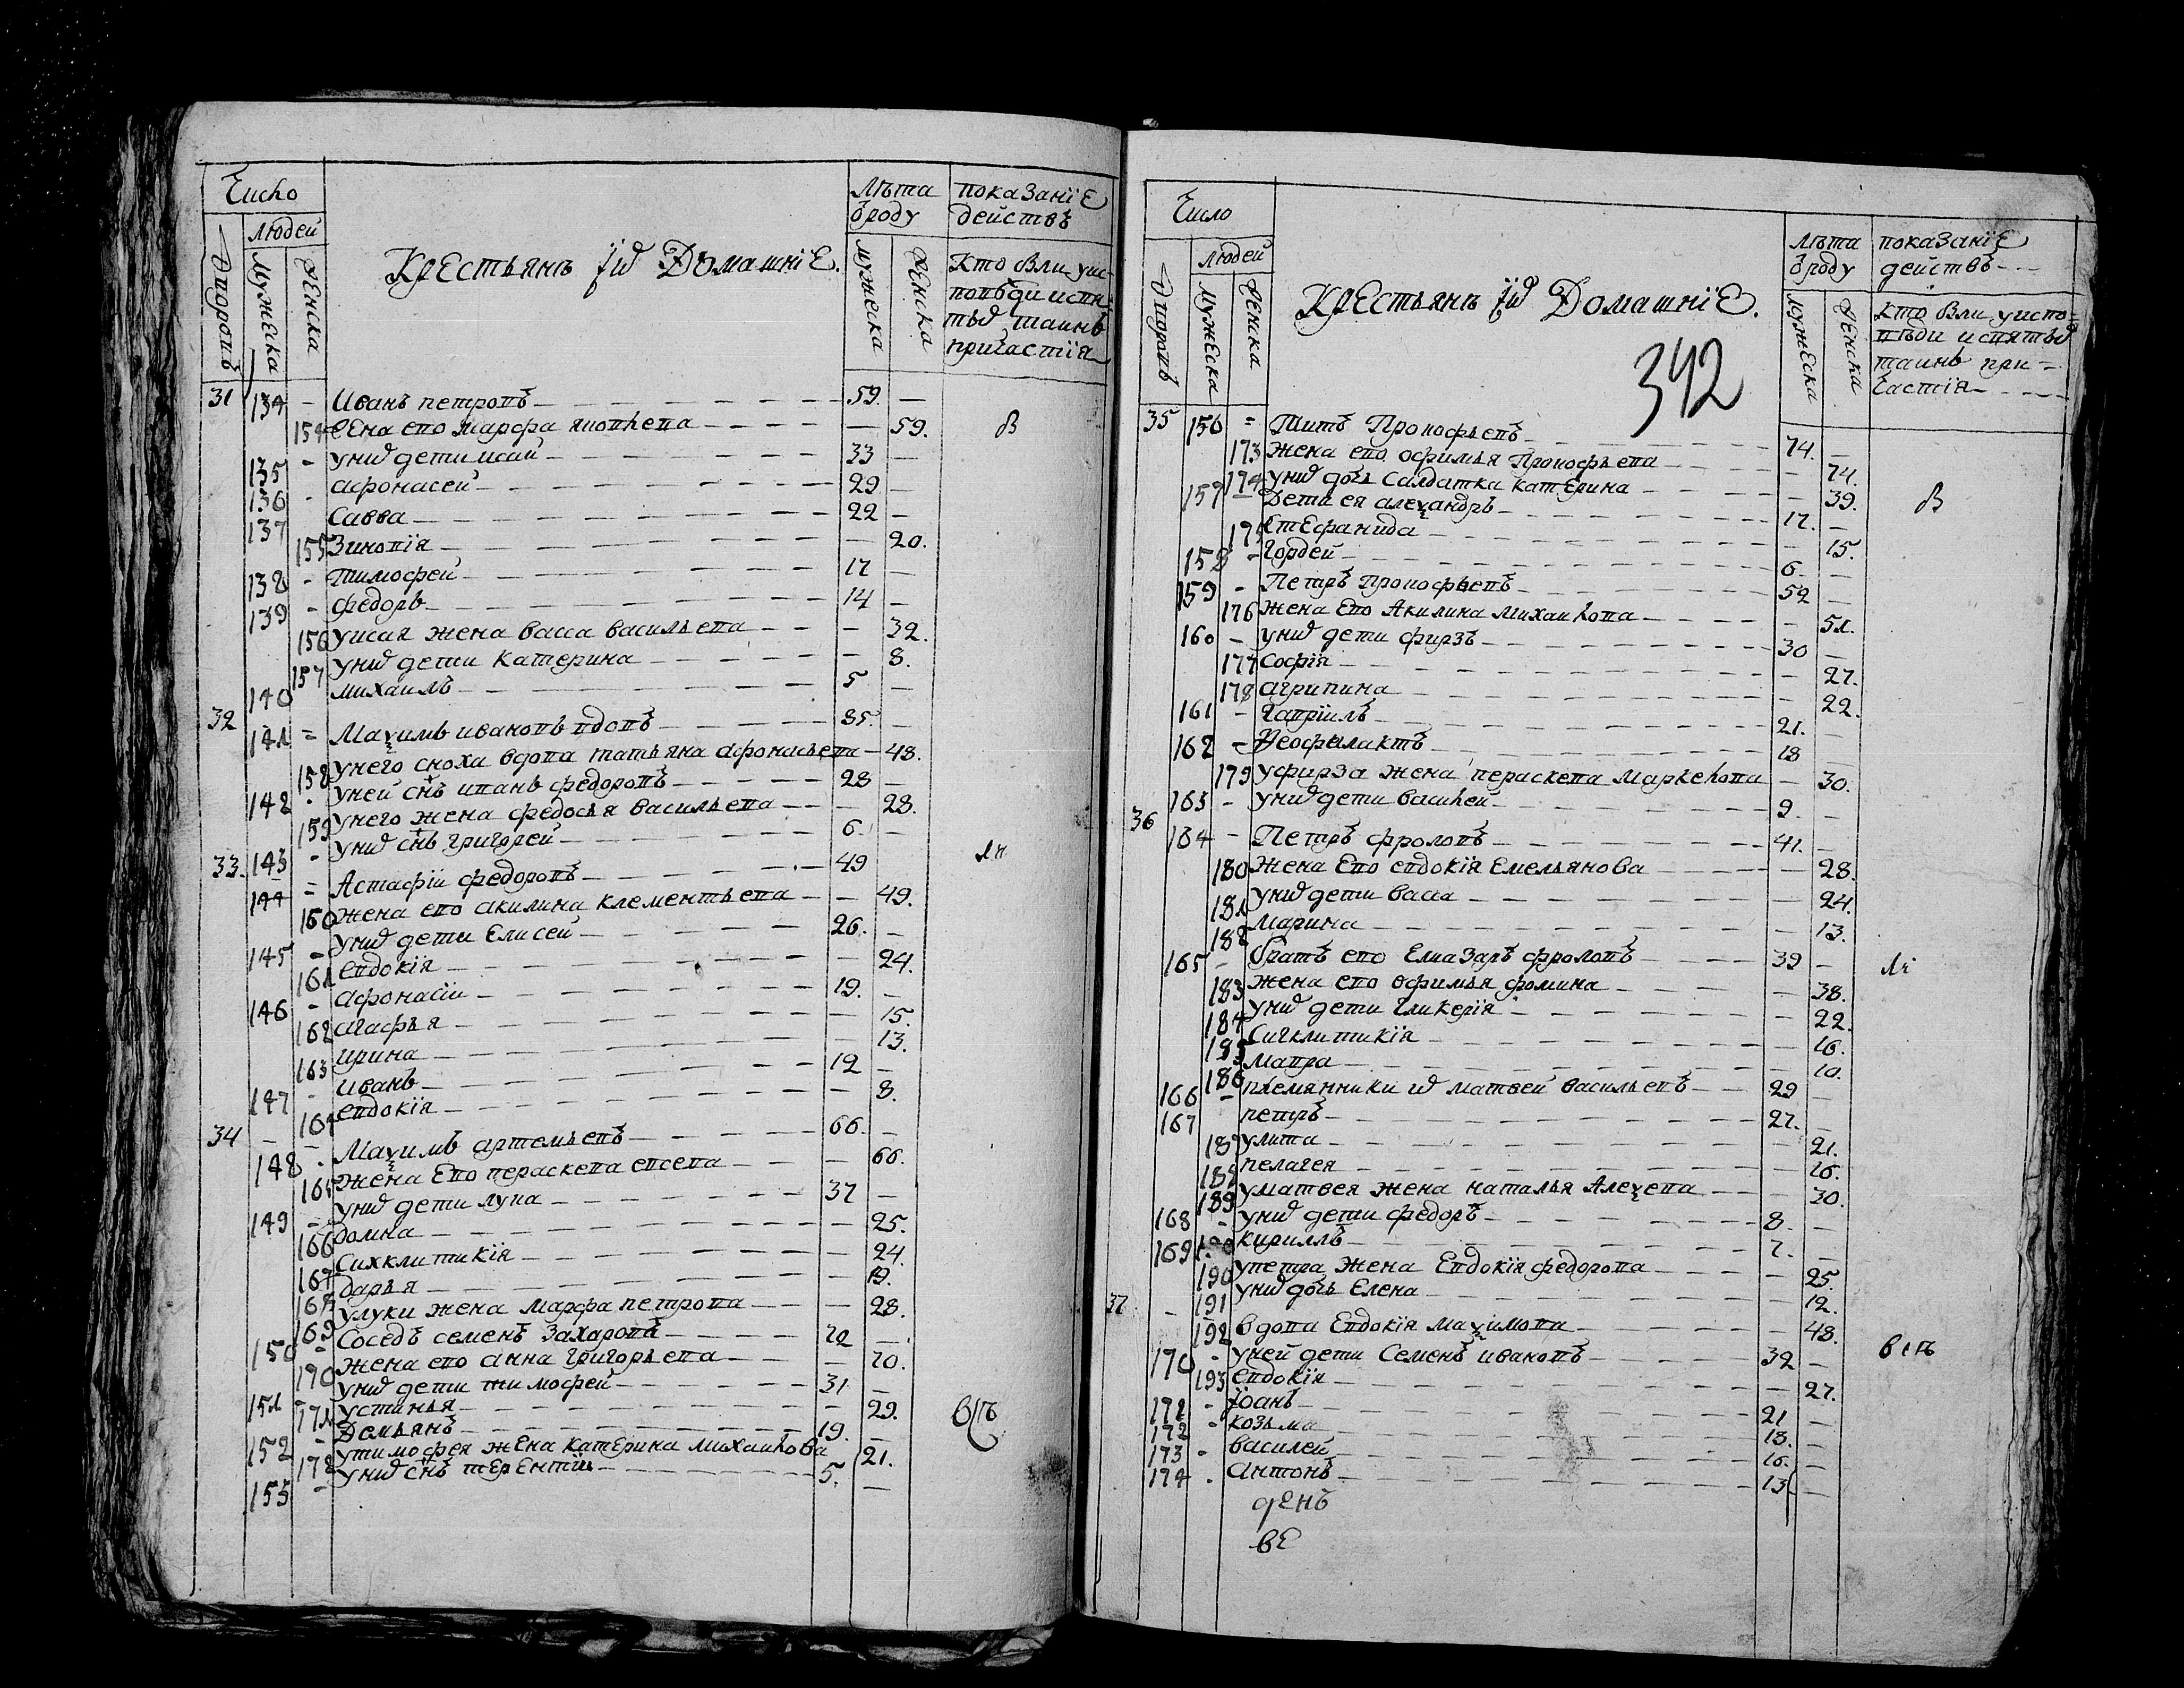 Число
Людей
Дворовъ
Мужеска
Женска
Крестьянъ їѡ Домашнїе.
Лѣта ѿроду
мужеска
женска
показанїе
действъ
Кто были уис-
поведи испя-
тыѡ таинъ
причастїя
31 134 – Иванъ петровъ 59. –
154 жена ево марфа яковлева – 59. в
135 – униѡ дети исаи 33 –
136 – афонасеи 29 –
137 Савва 22 –
155 Зиновїя – 20.
138 – Тимофеи 17 –
139 – федоръ 14 –
156 уисая жена васса васильева – 32.
157 униѡ дети катерина – 8.
140 михаилъ 5 –
32 141 = Маѯимъ ивановъ вдовъ 85. –
158 унего сноха вдова татьяна афонасьева – 48.
142 - уней снъ иванъ федоровъ 28 –
159 унего жена федосья васильева – 28.
143 - униѡ снъ григореи 6. –
33. 144 = Астафїи федоровъ 49
160 жена ево акилина клементьева – 49.
145 – униѡ дети Елисей 26. –
161 евдокїя – 24.
146 – афонасїи 19. –
162 агафья – 15.
163 ирина – 13.
147 – иванъ 12 –
164 евдокїя – 8.
34 148 - Маѯимъ артемьевъ 66. –
165 жена Ево параскева евсева – 66.
149 – униѡ дети лука 37 –
166 домна – 25.
167 Сихклитикїя – 24.
168 дарья – 19.
169 улуки жена марфа петрова – 28.
150 – Соседъ семенъ захаровъ 70 –
170 жена ево анна григорьева – 70.
151 – униѡ дети тимофей 31 –
171 устинья – 29.
152 – Демьянъ 19. –
172 утимофея жена катерина михаилова 21.
153 – униѡ снъ терентїи 5. –
Число
Людей
Дворовъ
Мужеска
Женска
Крестьянъ їѡ Домашнїе.
342
Лѣта ѿроду
Мужеска
Женска
показанїе
действъ
Кто были уиспо=
веди испятыѡ
таинъ при=
частїя
35 156 = Титъ Прокофьевъ 74. –
173 жена ево офимья Прокофьева – 74.
174 униѡ дочь Салдатка катерина – 39. в
157 Дети ея алеѯандръ 17. –
175 Стефанида – 15.
158 – Гордеи 6. –
159 – Петръ Прокофьевъ 52 –
176 жена Ево Акилина михаилова – 51.
160 – униѡ дети фирзъ 30 –
177 софїя – 27.
178 агрипина – 22.
161 – Гаврїилъ 21. –
162 – Феофилактъ 18
179 уфирза жена параскева маркелова – 30.
163 – униѡ дети василей 9. –
36 164 – Петръ фроловъ 41. –
180 жена Ево евдокїя Емельянова – 28.
181 униѡ дети васса – 24.
182 марина – 13.
165 – братъ ево Елиазаръ фроловъ 39 –
183 жена ево офимья фомина – 38.
184 униѡ дети гликерїя – 22.
185 Сигклитикїя – 16.
186 мавра – 10.
166 – племянники иѡ матвей васильевъ 29 –
167 петръ 27. –
187 улита – 21.
188 пелагея – 16.
189 уматвея жена наталья Алеѯева – 30.
168 – униѡ дети федоръ 8. –
169 кириллъ 7. –
190 упетра жена Евдокїя федорова – 25.
191 униѡ дочь Елена – 12.
37 192 вдова Евдокїя маѯимова – 48.
170 – уней дети Семенъ ивановъ 32 –
193 евдокїя – 27.
171 – Їоанъ 21 –
172 – козьма 18. –
173 – василей 16. –
174 - Антонъ 13 –